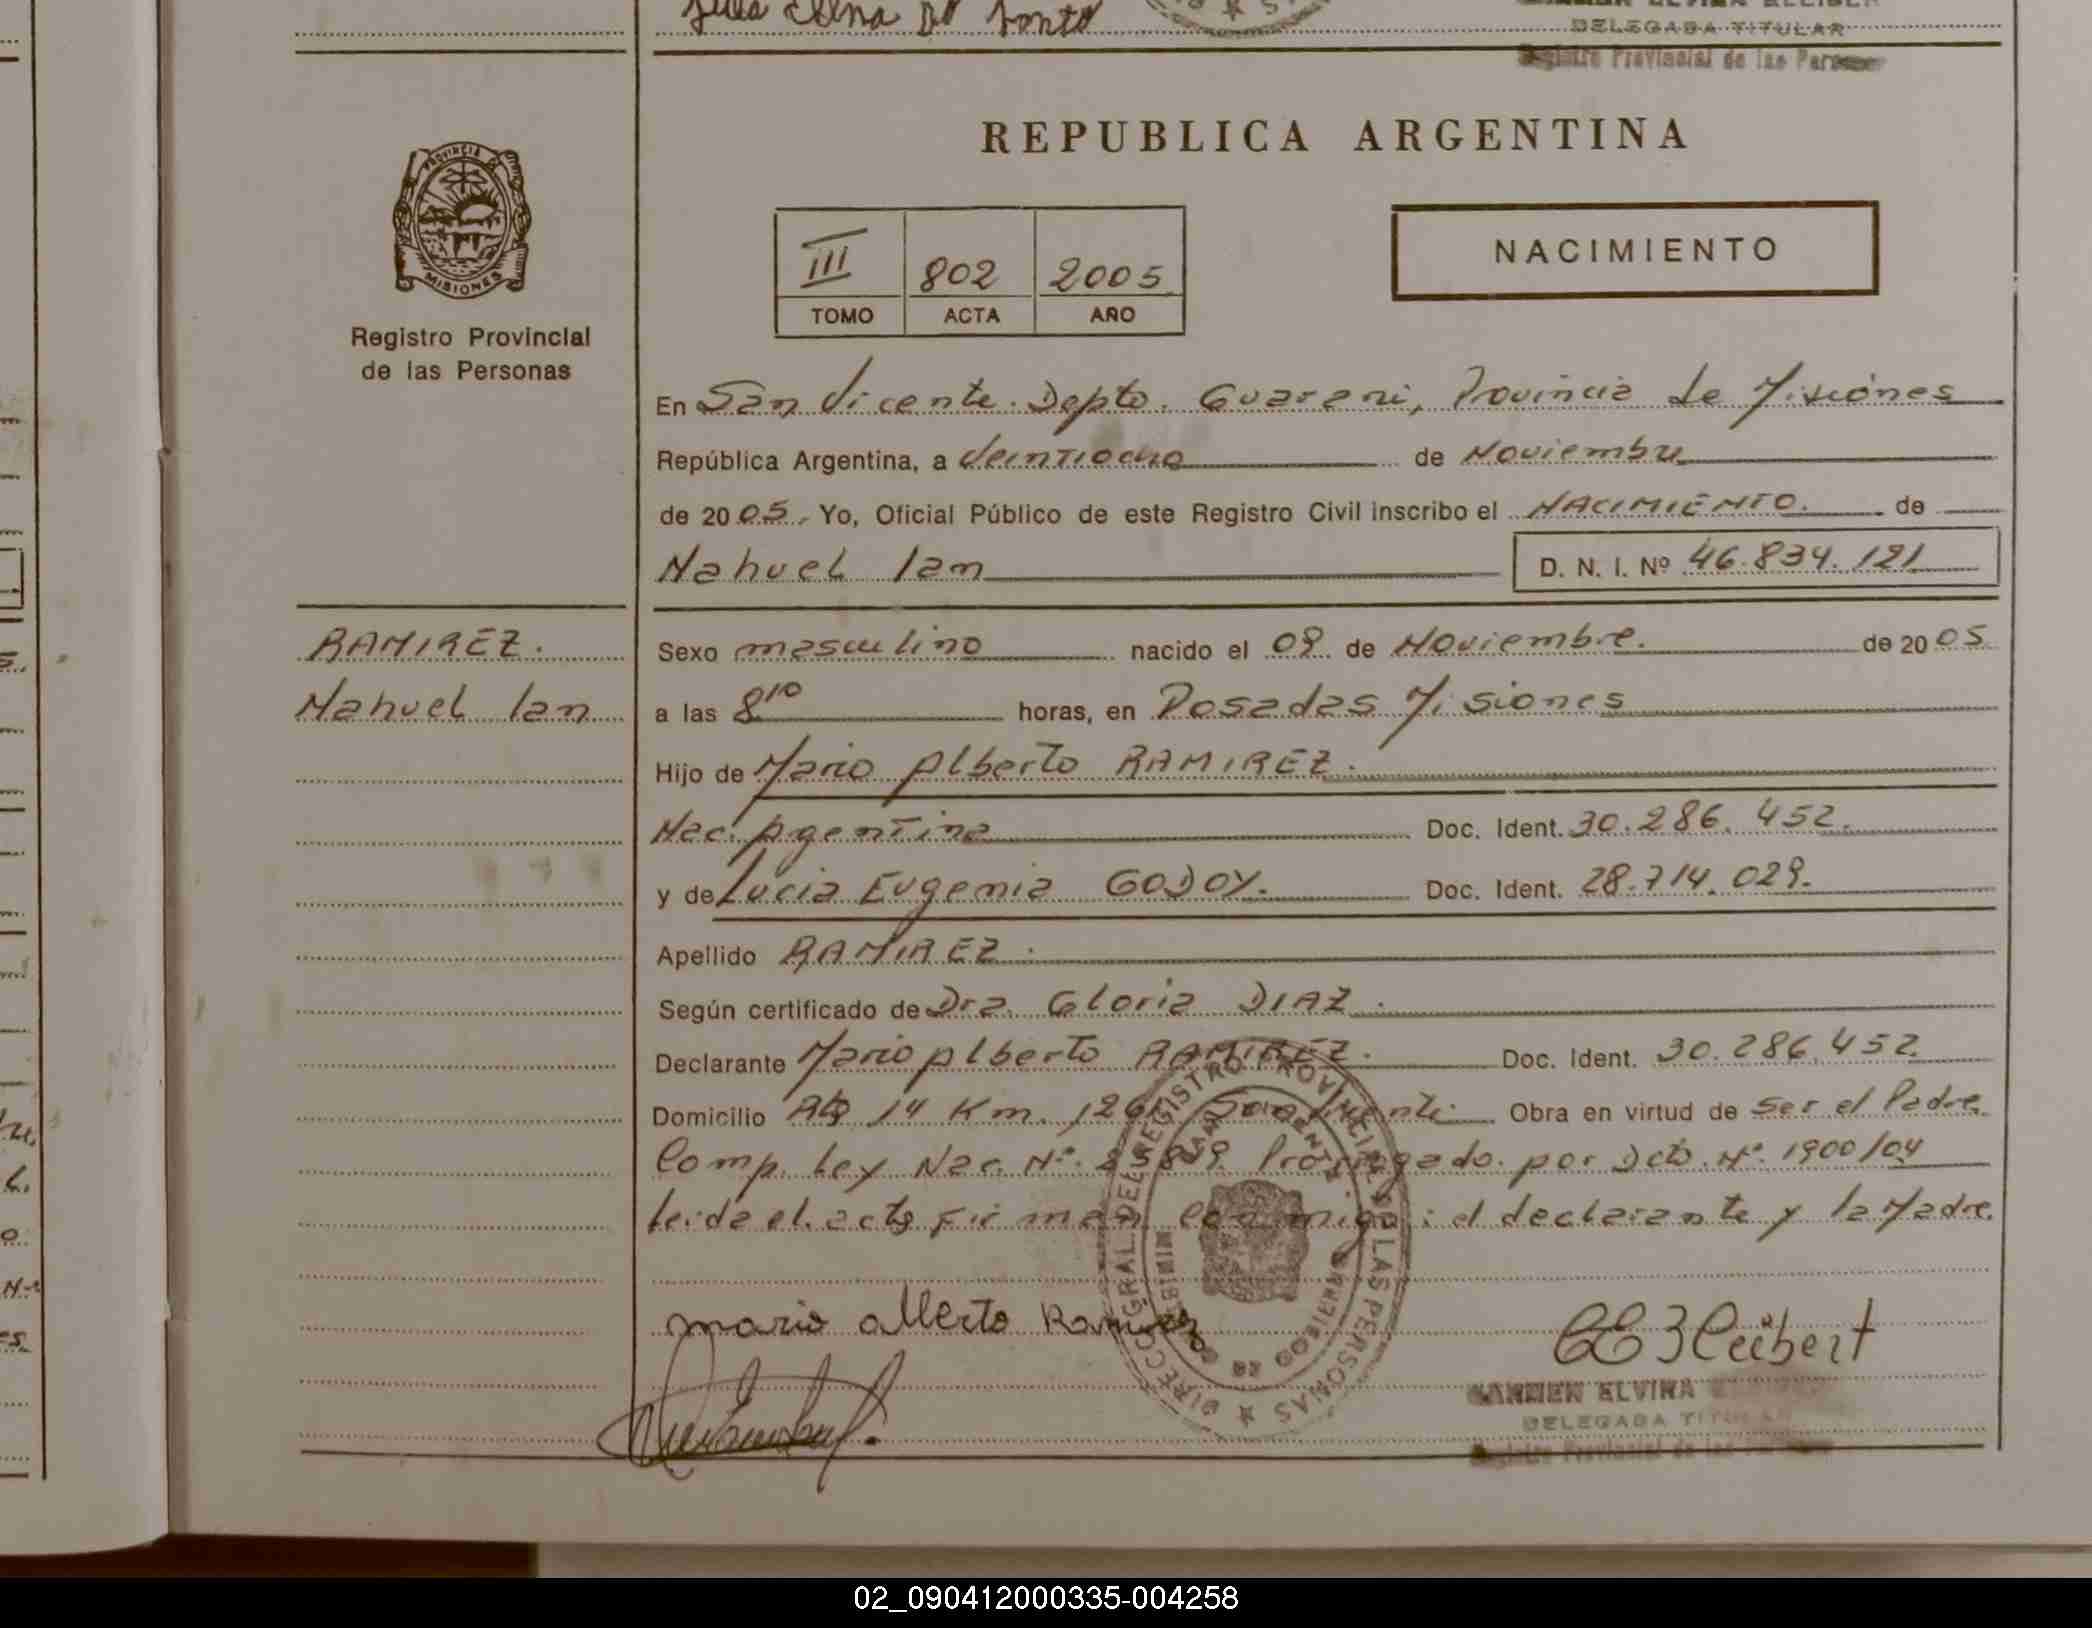 DELEGADA TITULAR
Registro Provincial de las Personas
REPUBLICA ARGENTINA
PROVINCIA DE
MISIONES
Registro Provincial
de las Personas
III 802 2005
TOMO ACTA AÑO
NACIMIENTO
En San Vicente. Depto. Guarani, Provincia de Misiones
República Argentina, a Veintiocho de Noviembre
de 2005. Yo, Oficial Público de este Registro Civil inscribo el NACIMIENTO. de
Nahuel Ian D. N. I. Nº 46.834.121
RAMIREZ.
Nahuel Ian
Sexo masculino nacido el 09 de Noviembre. de 2005
a las 8 10 horas, en Posadas Misiones
Hijo de Mario Alberto RAMIREZ.
Nac. Agentina Doc. Ident. 30.286.452.
y de Lucia Eugenia GODOY. Doc. Ident. 28.714.029.
Apellido RAMIREZ.
Según certificado de Dra. Gloria DIAZ.
Declarante Mario Alberto RAMIREZ. Doc. Ident. 30.286.452.
Domicilio 14 Km. San Vicente. Obra en virtud de ser el Padre.
Comp. Ley Nac. Nº. Prorrogado por Dcto. Nº. 1900/04
leida el acta firman conmigo: el declarante y la Madre.
DIRECC. GRAL. DEL REGISTRO PROVINCIAL DE LAS PERSONAS
mario alberto Ramirez
CARMEN ELVIRA
DELEGADA TITULAR
Registro Provincial de las
02_090412000335-004258